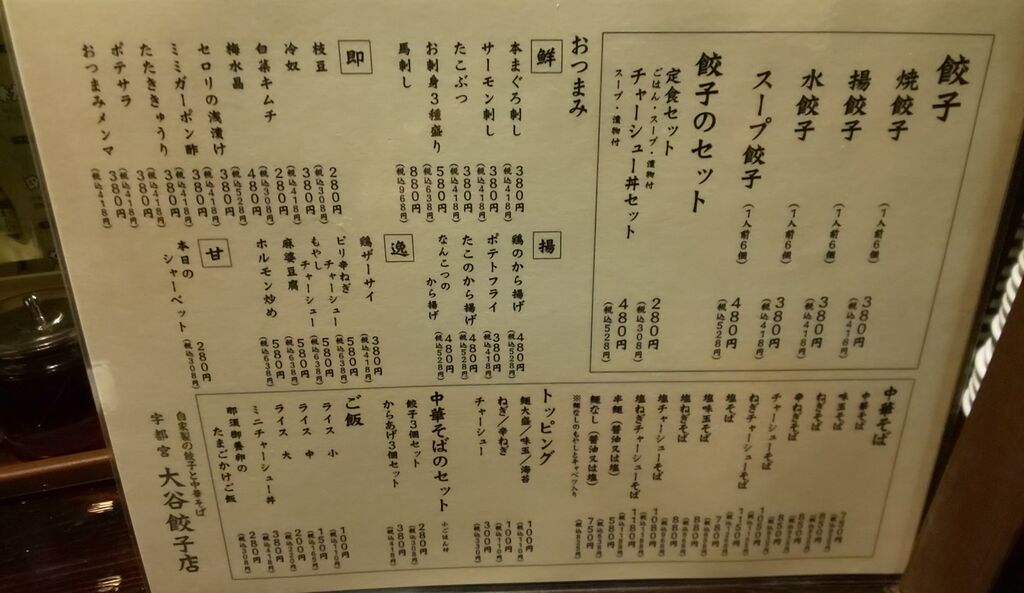 餃子
焼餃子 (1人前6個) 380円 (税込418円)
揚餃子 (1人前6個) 380円 (税込418円)
水餃子 (1人前6個) 380円 (税込418円)
スープ餃子 (1人前6個) 480円 (税込528円)
餃子のセット
定食セット 280円 (税込308円)
ごはん・スープ・漬物付
チャーシュー丼セット 480円 (税込528円)
スープ・漬物付
おつまみ
鮮
本まぐろ刺し 380円 (税込418円)
サーモン刺し 380円 (税込418円)
たこぶつ 380円 (税込418円)
お刺身3種盛り 580円 (税込638円)
馬刺し 880円 (税込968円)
即
枝豆 280円 (税込308円)
冷奴 380円 (税込418円)
白菜キムチ 280円 (税込308円)
梅水晶 480円 (税込528円)
セロリの浅漬け 380円 (税込418円)
ミミガーポン酢 380円 (税込418円)
たたききゅうり 380円 (税込418円)
ポテサラ 380円 (税込418円)
おつまみメンマ 380円 (税込418円)
揚
鶏のから揚げ 480円 (税込528円)
ポテトフライ 380円 (税込418円)
たこのから揚げ 480円 (税込528円)
なんこつのから揚げ 480円 (税込528円)
逸
鶏ザーサイ 380円 (税込418円)
ピリ辛ねぎチャーシュー 580円 (税込638円)
もやしチャーシュー 580円 (税込638円)
麻婆豆腐 580円 (税込638円)
ホルモン炒め 580円 (税込638円)
甘
本日のシャーベット 280円 (税込308円)
中華そば
中華そば
味玉そば
ねぎそば
辛ねぎそば
チャーシューそば
ねぎチャーシューそば
塩そば
塩味玉そば
塩ねぎそば
塩チャーシューそば
塩ねぎチャーシューそば
半麺 (醤油又は塩) 580円
麺なし (醤油又は塩) 750円
※麺なしのもやしとキャベツ入り
トッピング
麺大盛/味玉/海苔 100円 (税込110円)
ねぎ/辛ねぎ 100円 (税込110円)
チャーシュー 300円
中華そばのセット
+ごはん付
餃子3個セット 280円 (税込308円)
からあげ3個セット 380円 (税込418円)
ご飯
ライス 小 100円 (税込110円)
ライス 中 150円
ライス 大 200円 (税込220円)
ミニチャーシュー丼 380円 (税込418円)
那須御養卵のたまごかけご飯 280円 (税込308円)
自家製の餃子と中華そば
宇都宮 大谷餃子店